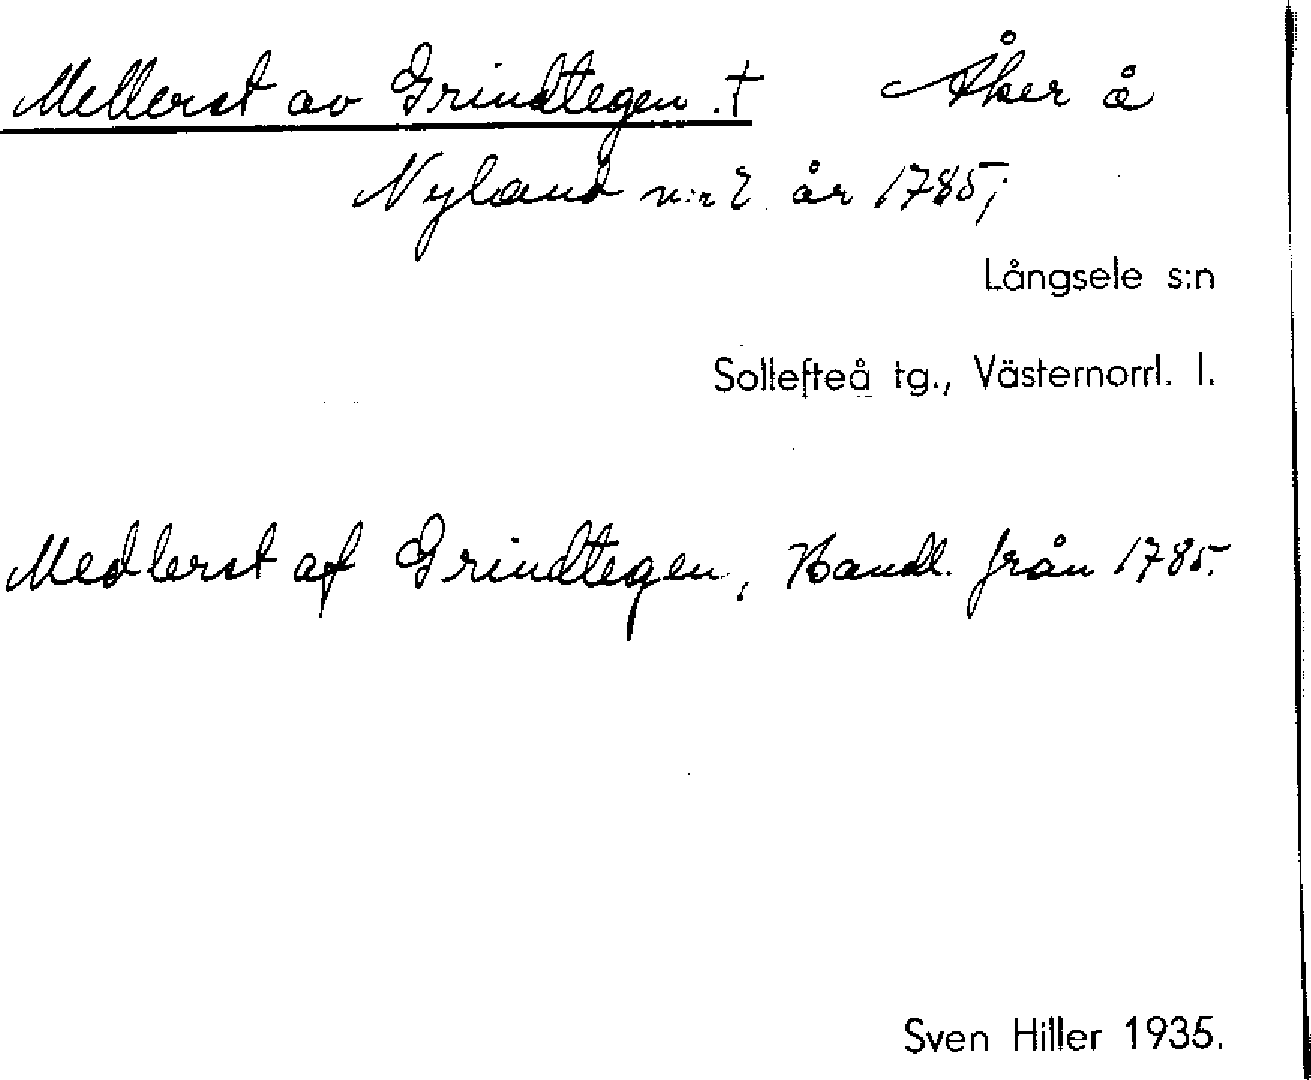 Mellerst av Grindtegen. † Åker å
Nyland n:r 2 år 1785;
Långsele s:n
Sollefteå tg., Västernorrl. l.
Medlerst af Grindtegen, Handl. från 1785.
Sven Hiller 1935.